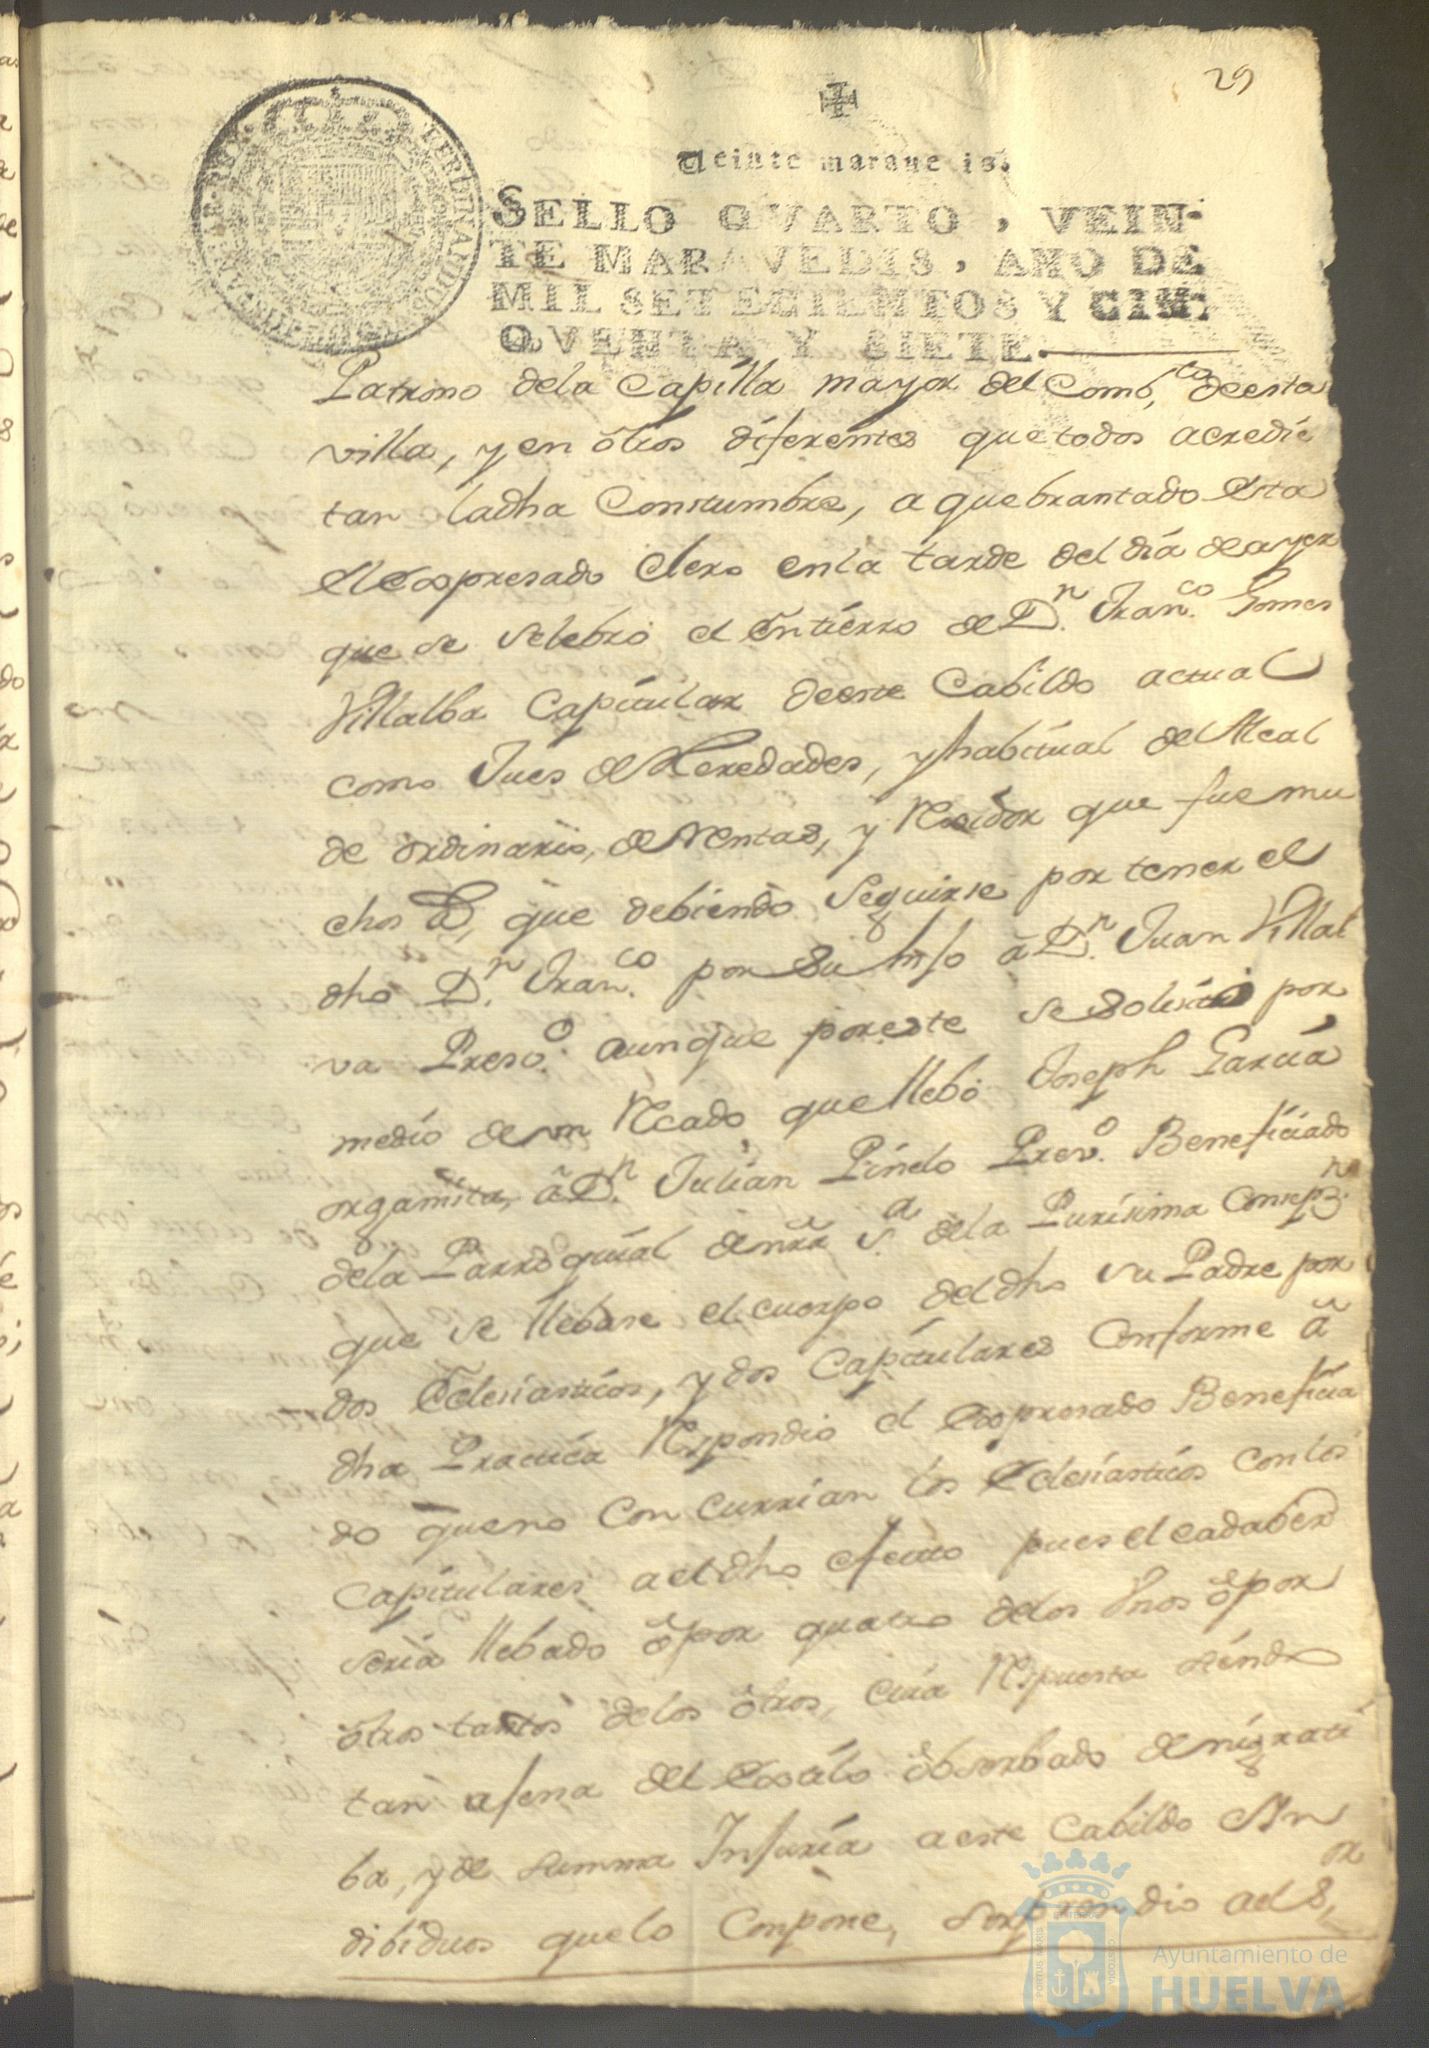 29
Veinte maraue is.
SELLO QVARTO, VEIN-
TE MARAVEDIS, AÑO DE
MIL SETECIENTOS Y CIN-
QVENTA Y SIETE.
Patrono dela Capilla mayor del Comb,to deesta
villa, y en otros diferentes que todos acredi
tan ladha Constumbre, a quebrantado esta
el expresado Clero enla tarde del dia de ayer
que se selebro el Entierro de Dn. Franco. Gomes
Villalba Capitular deeste Cabildo actual
como Jues de Heredades, y habitual del Alcal
de ordinario, de Rentas, y Rexidor que fue mu
chos as, que debiendo seguirse por tener el
dho Dn. Franco. por su hijo â Dn. Juan Villal
va Presvo. aunque poreste se solisitó por
medio de vn Recado que llebó Joseph Garcia
organista, â Dn. Julian Pinelo Prevo. Beneficiado
dela Parroquial denrâ Sa. dela Purisima Consepzn.
que se llebase el cuerpo del dho su Padre por
dos Eclesiasticos, y dos Capitulares Conforme â
dha Practica Respondio el expresado Beneficia
do queno Concurrian los Eclesiasticos Conlos
Capitulares ael dho efecto pues el cadaber
seria llebado ô por quatro delos Vnos ô por
otros tantos delos otros, cuia Respuesta siendo
tan ajena del Estilo observado denigrati
ba, y de summa Injuria aeste Cabildo Yn
dibiduos quelo Conpone, sorprendio ael Sor,
Ayuntamiento de
HUELVA